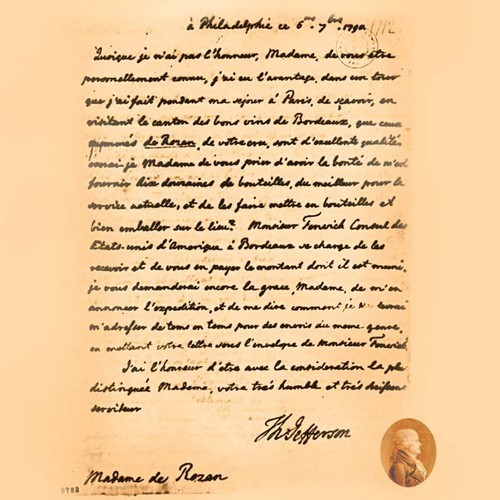 à Philadelphie ce 6me 7bre 1790
Quoique je n'ai pas l'honneur, Madame, de vous être
personellement connu, j'ai eu l'avantage, dans un tour
que j'ai fait pendant ma sejour à Paris, de sçavoir, en
visitant le canton des bons vins de Bordeaux, que ceux
de Rozan, de votre cru, sont d'excellente qualité
Madame de vous prier d'avoir la bonté de m'en
fournir dix douzaines de bouteilles, du meilleur pour le
service actuelle, et de les faire mettre en bouteilles et
bien emballer sur le lieu. Monsieur Fenwick Consul des
Etats-unis d'Amerique à Bordeaux se charge de les
recevoir et de vous en payer le montant dont il est muni.
je vous demanderai encore la grace, Madame, de m'en
annoncer l'expedition, et de me dire comment je
m'adresser de tems en tems pour des envois du meme genre,
en mettant votre lettre sous l'envelope de Monsieur Fenwick
J'ai l'honneur d'etre avec la consideration la plus
distinguée Madame, votre très humble et très obeissant
serviteur
Th Jefferson
Madame de Rozan